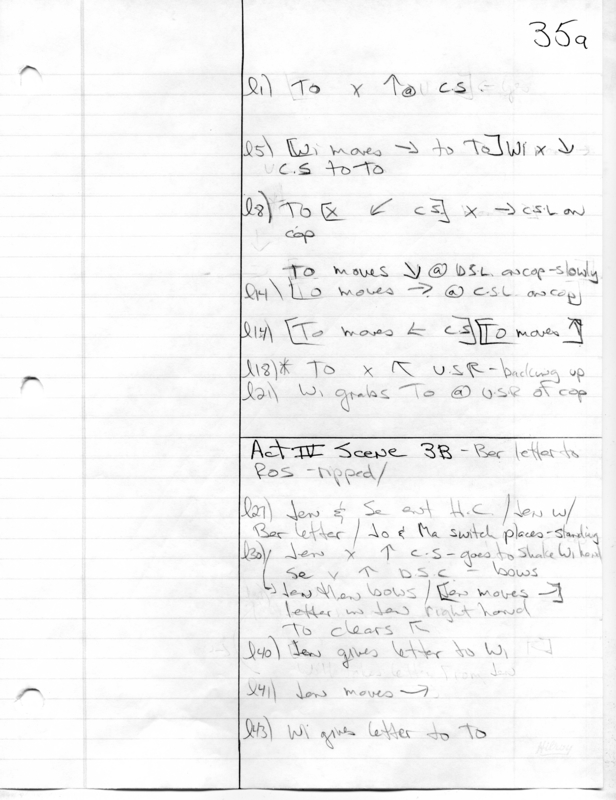 35a
l1) [To x ↑ @ C.S.
l5) [Wi moves → to To] Wi x ↓
C.S to To
l8) To [x ↙ CS] x → CSL on
cop
To moves ↓ @ DSL on cop - slowly
l14) [To moves → @ CSL on cop]
l14) [To moves ← CS] [To moves ↑]
l18)* To x ↖ U.S.R - backing up
l21) Wi grabs To @ USR of cop
Act IV Scene 3B - Ber letter to
Ros - ripped/
l27) Jen & Se ent H.C. / Jen w/
Ber letter / Jo & Ma switch places - standing
l30) Jen x ↑ C.S - goes to shake Wi hand
Se x ↑ D.S.C - bows
↳ Jen then bows / [Jen moves →]
letter in Jen right hand
To clears ↖
l40) Jen gives letter to Wi
l41) Jen moves →
l43) Wi gives letter to To